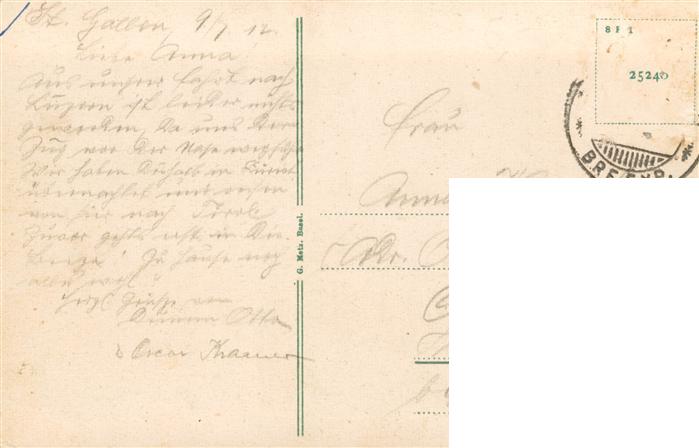 St. Gallen, 9/7. 12.
Liebe Anna
Aus unsrer Fahrt nach
Luzern ist leider nichts
geworden, da uns der
Zug vor der Nase wegfuhr
Wir haben deshalb in
übernachtet und reisen
von hier nach Tirol.
Zuvor gehts erst in die
Berge! Zu Hause noch
alles wohl.
Herzl. Grüsse von
Deinem Otto
& Oscar Kramer
G. Metz, Basel.
Frau
Anna
8 F 1
25240